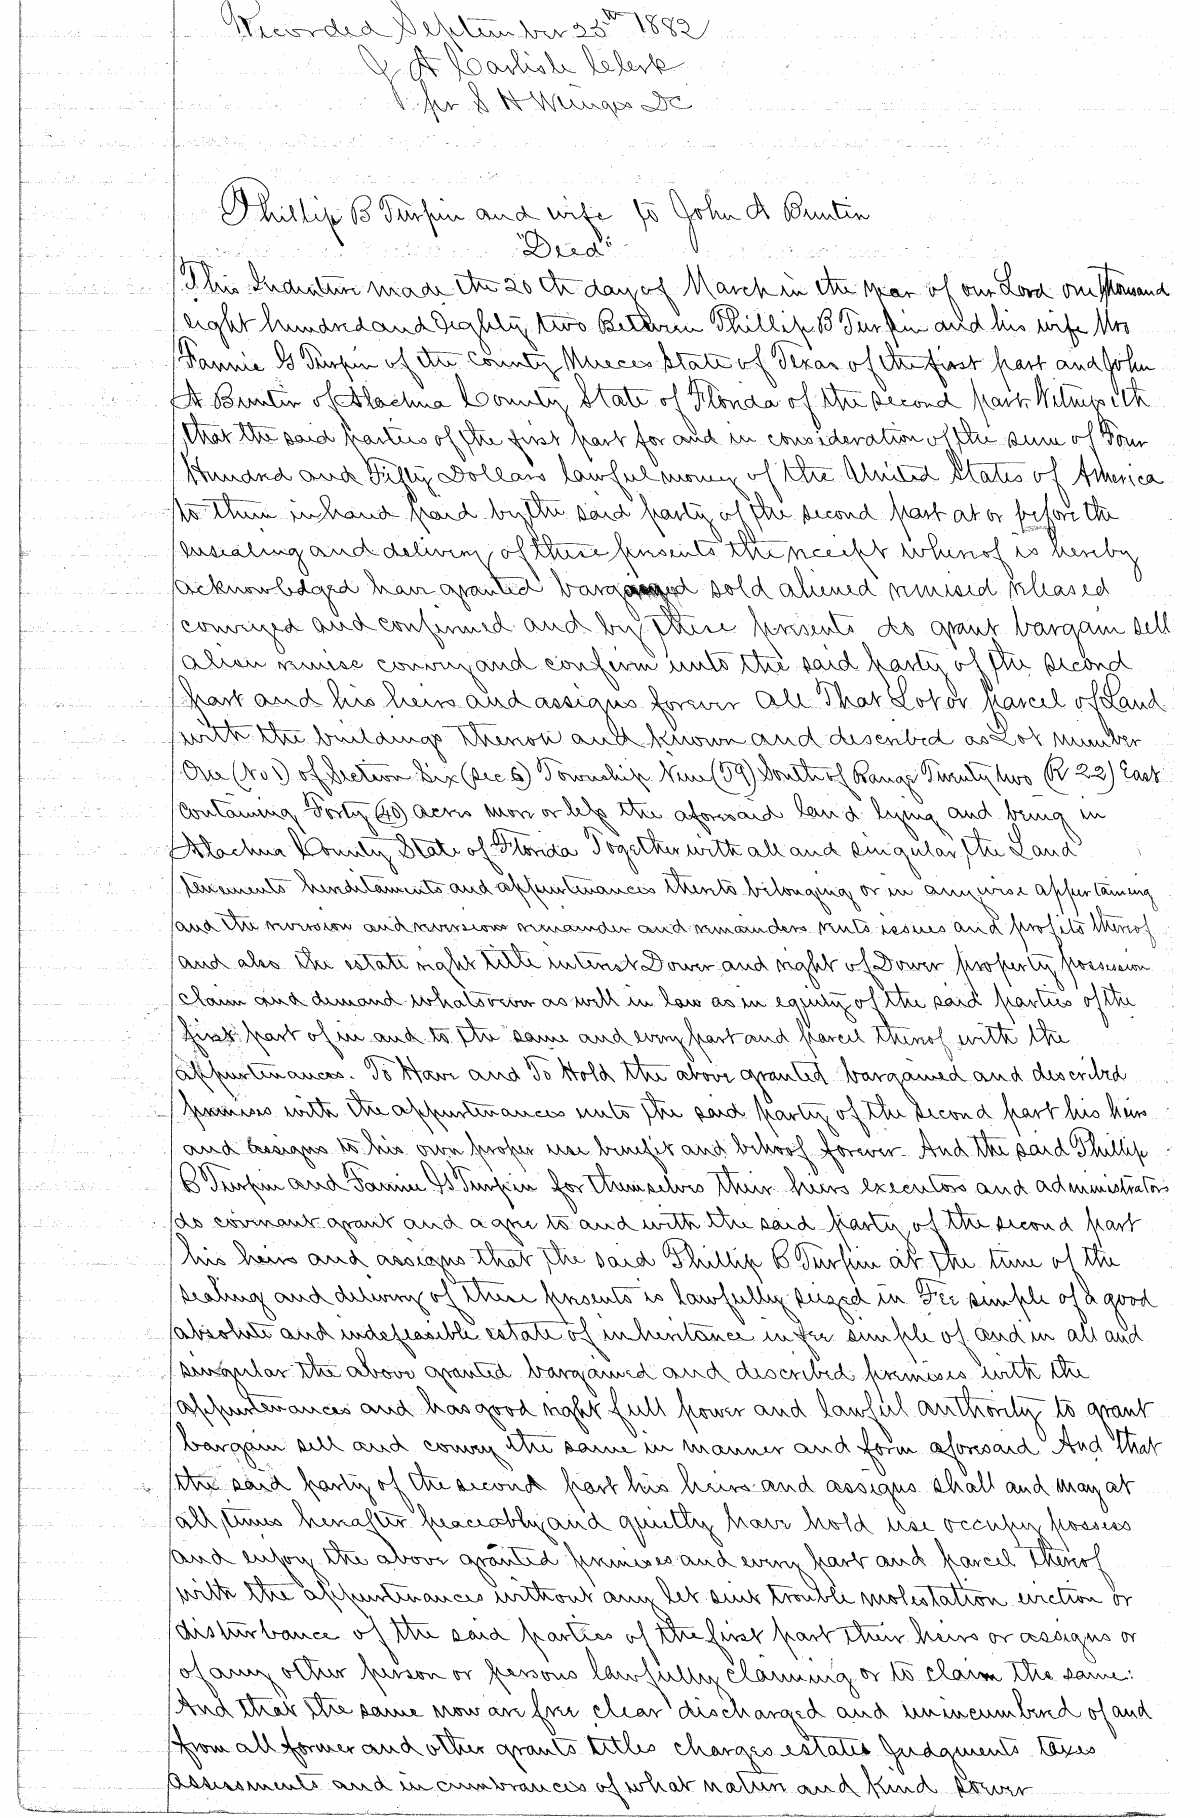 Recorded September 25th 1882
J A Carlisle Clerk
per S H Wienges DC
Phillip B Turpin and wife to John A Buntin
"Deed"
This Indenture made the 20th day of March in the year of our Lord one thousand
eight hundred and Eighty two Between Phillip B Turpin and his wife Mrs
Fannie G Turpin of the County Nueces State of Texas of the first part and John
A Buntin of Alachua County State of Florida of the second part Witnesseth
that the said parties of the first part for and in consideration of the sum of Four
Hundred and Fifty Dollars lawful money of the United States of America
to them in hand paid by the said party of the second part at or before the
ensealing and delivery of these presents the receipt whereof is hereby
acknowledged have granted bargained sold aliened remised released
conveyed and confirmed and by these presents do grant bargain sell
alien remise convey and confirm unto the said party of the second
part and his heirs and assigns forever All That Lot or parcel of Land
with the buildings thereon and known and described as Lot number
One (No 1) of Section Six (Sec 6) Township Nine (T9) South of Range Twenty two (R 22) East
containing Forty (40) acres more or less the aforesaid land lying and being in
Alachua County State of Florida Together with all and singular the Land
tenements hereditaments and appurtenances thereto belonging or in anywise appertaining
and the reversion and reversions remainder and remainders rents issues and profits thereof
and also the estate right title interest Dower and right of Dower property possession
claim and demand whatsoever as well in law as in equity of the said parties of the
first part of in and to the same and every part and parcel thereof with the
appurtenances. To Have and To Hold the above granted bargained and described
premises with the appurtenances unto the said party of the second part his heirs
and assigns to his own proper use benefit and behoof forever. And the said Phillip
B Turpin and Fannie G Turpin for themselves their heirs executors and administrators
do covenant grant and agree to and with the said party of the second part
his heirs and assigns that the said Phillip B Turpin at the time of the
sealing and delivery of these presents is lawfully seized in Fee simple of a good
absolute and indefeasible estate of inheritance in fee simple of and in all and
singular the above granted bargained and described premises with the
appurtenances and has good right full power and lawful authority to grant
bargain sell and convey the same in manner and form aforesaid And that
the said party of the second part his heirs and assigns shall and may at
all times hereafter peaceably and quietly have hold use occupy possess
and enjoy the above granted premises and every part and parcel thereof
with the appurtenances without any let suit trouble molestation eviction or
disturbance of the said parties of the first part their heirs or assigns or
of any other person or persons lawfully claiming or to claim the same:
And that the same now are free clear discharged and unincumbered of and
from all former and other grants titles charges estates Judgments taxes
assessments and incumbrances of what nature and kind soever